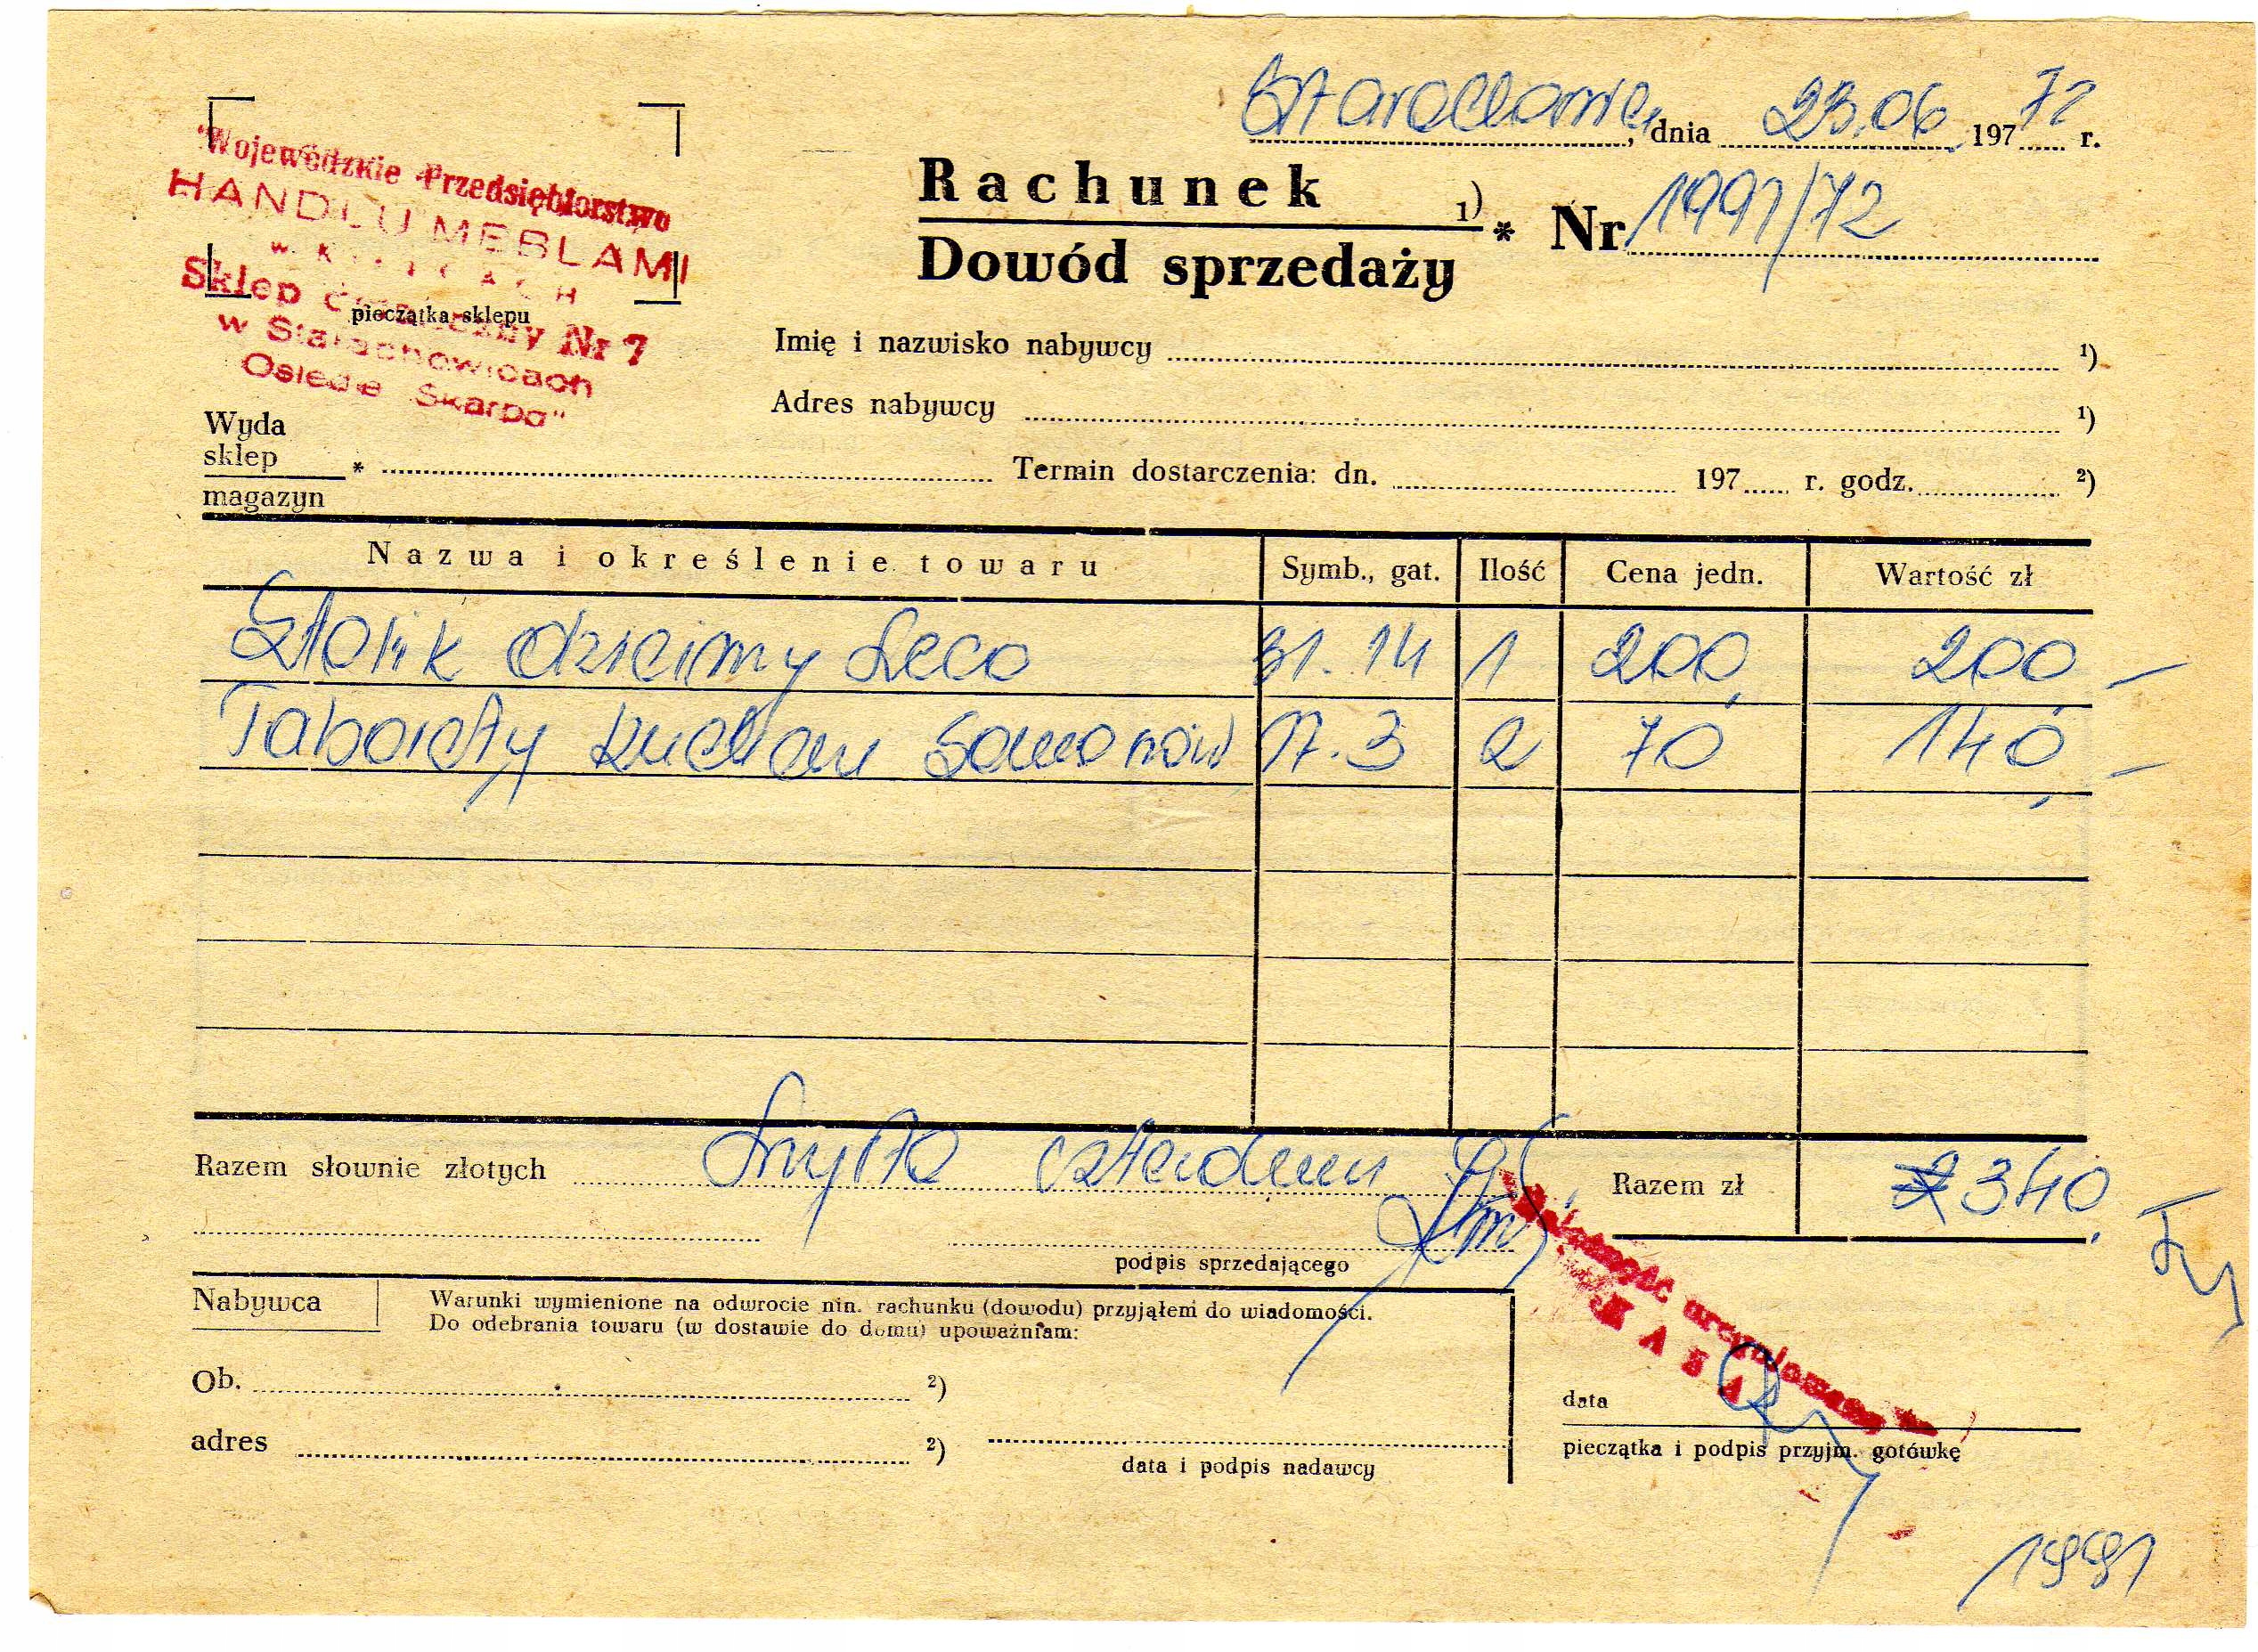 Wojewódzkie Przedsiębiorstwo
HANDLU MEBLAMI
Sklep Nr 7
w Starachowicach
Osiedle "Skarpa"
pieczątka sklepu
dnia 23.06 1972 r.
Rachunek 1)
Dowód sprzedaży * Nr 1991/72
Imię i nazwisko nabywcy 1)
Adres nabywcy 1)
Wyda
sklep
magazyn * Termin dostarczenia: dn. 197 r. godz. 2)
Nazwa i określenie towaru Symb., gat. Ilość Cena jedn. Wartość zł
Stolik dziecinny 31.14 1 200, 200,-
Taborety kuchen 17.3 2 70 140,-
Razem słownie złotych Razem zł 340,
podpis sprzedającego
Nabywca
Warunki wymienione na odwrocie nin. rachunku (dowodu) przyjąłem do wiadomości.
Do odebrania towaru (w dostawie do domu) upoważniam:
Ob. 2)
adres 2)
data i podpis nadawcy
Należność uregulowano
KASA
data
pieczątka i podpis przyjm. gotówkę
1991